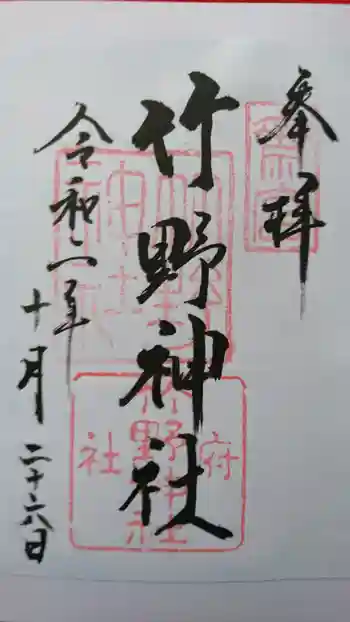 奉拝
竹野神社
令和二年
十月二十六日
府社
竹野神社